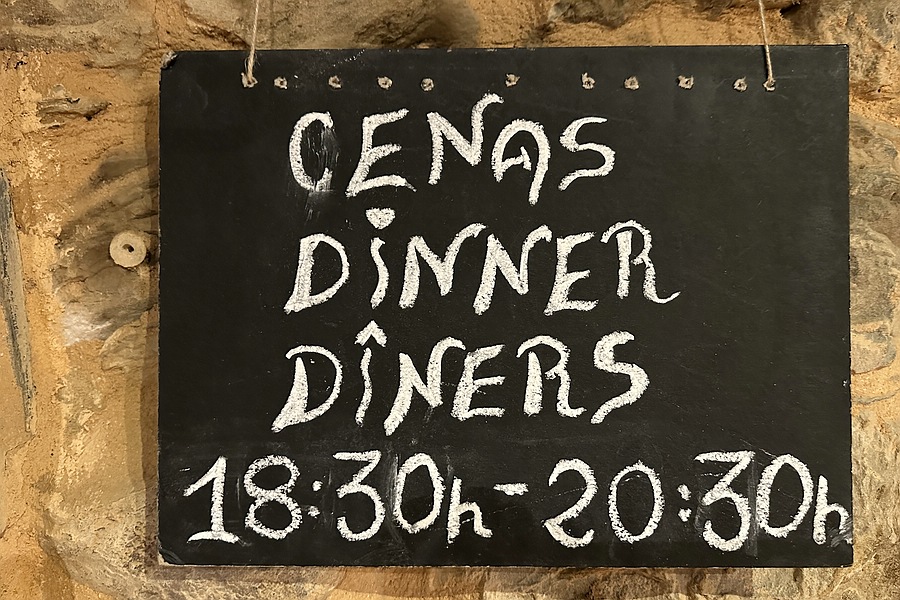 CENAS
DiNNER
DÎNERS
18:30h-20:30h